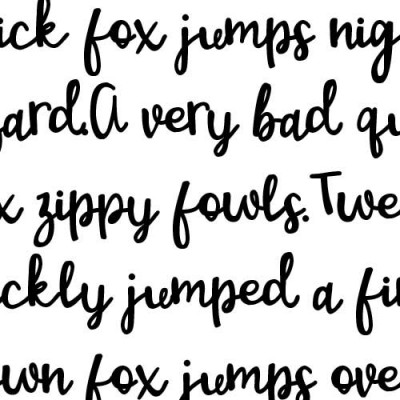 ick fox jumps nig
ard. A very bad qu
x zippy fowls. Twe
ckly jumped a fi
own fox jumps ove